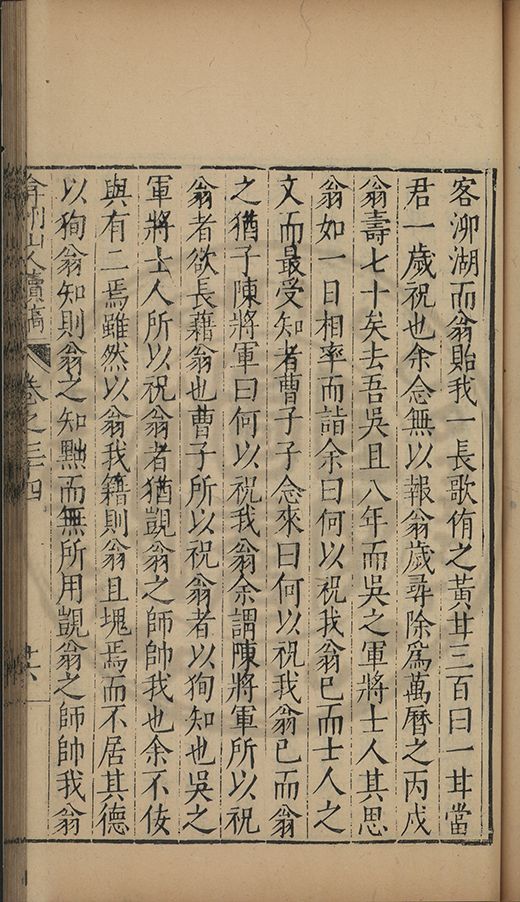 客泖湖而翁貽我一長歌侑之黃甘三百曰一甘當
君一歲祝也余念無以報翁歲尋除爲萬曆之丙戍
翁壽七十矣去吾吳且八年而吳之軍將士人其思
翁如一日相率而詣余曰何以祝我翁已而士人之
文而最受知者曹子子念來曰何以祝我翁已而翁
之猶子陳將軍曰何以祝我翁余謂陳將軍所以祝
翁者欲長藉翁也曹子所以祝翁者以狥知也吳之
軍將士人所以祝翁者猶覬翁之師帥我也余不佞
與有二焉雖然以翁我籍則翁且塊焉而不居其德
以狥翁知則翁之知黜而無所用覬翁之師帥我翁
弇州山人續稿 卷之三四 廿六